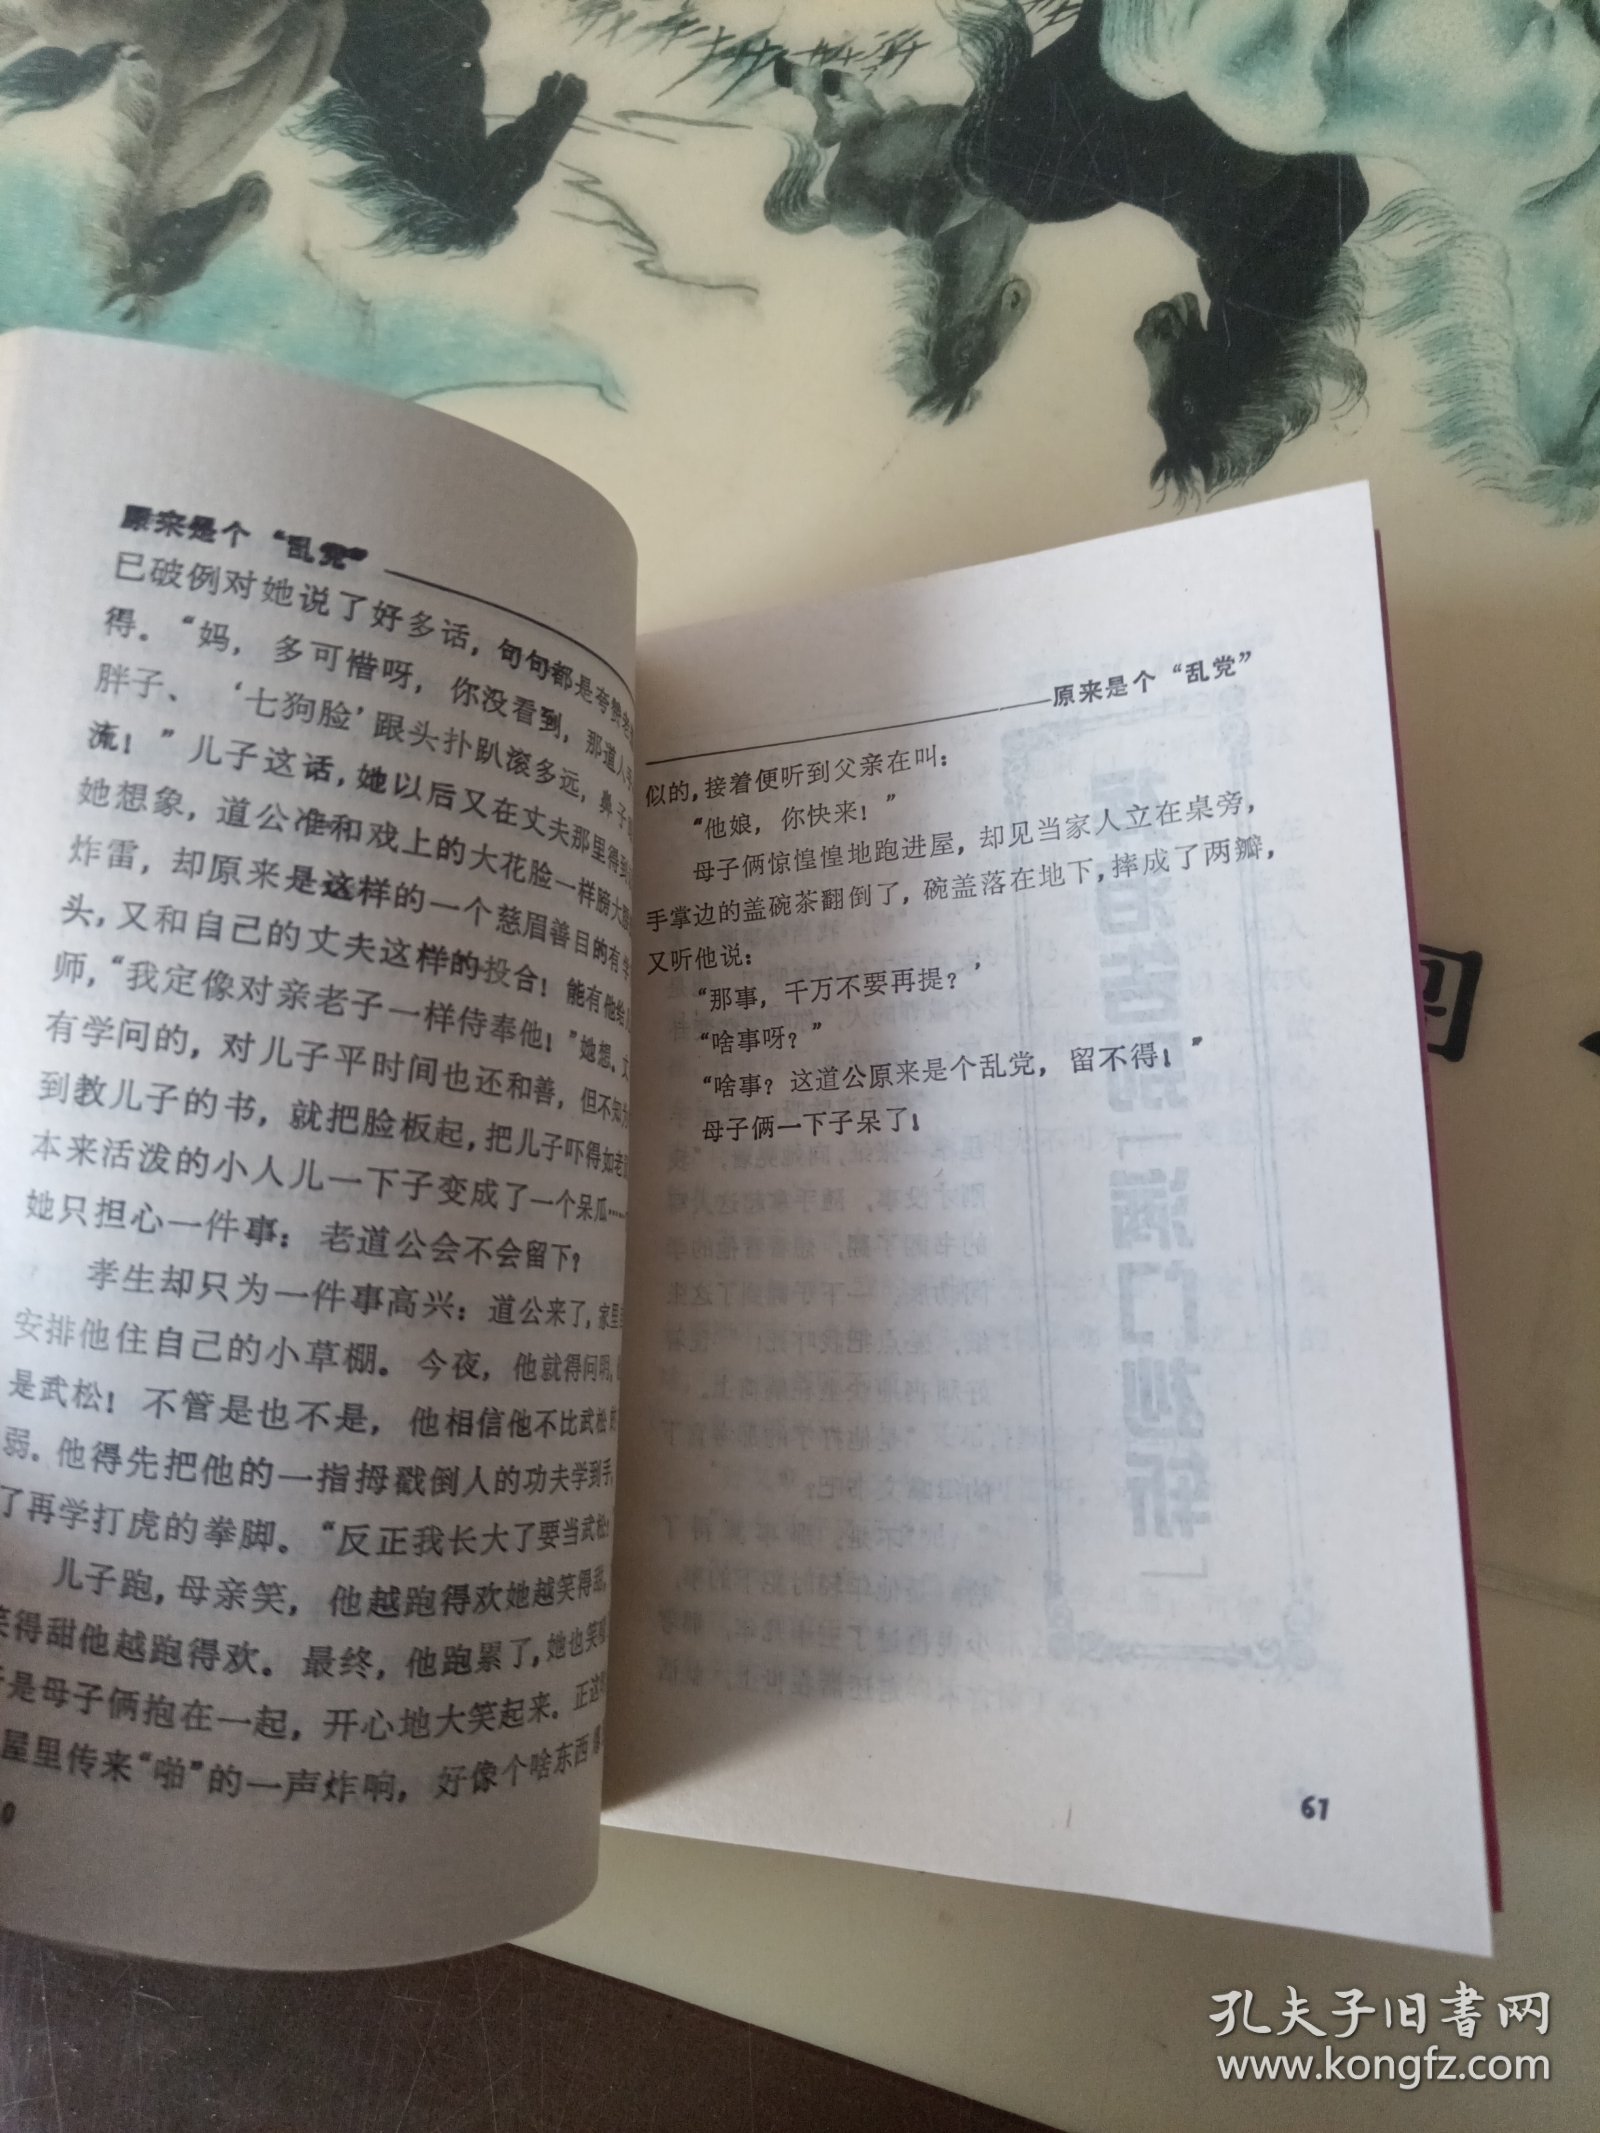 原来是个“乱党”
已破例对她说了好多话，句句都是夸赞老
得。“妈，多可惜呀，你没看到，那道人
胖子、‘七狗脸’跟头扑趴滚多远，鼻子
流！”儿子这话，她以后又在丈夫那里得到
她想象，道公准和戏上的大花脸一样膀大
炸雷，却原来是这样的一个慈眉善目的有学
头，又和自己的丈夫这样的投合！能有他给
师，“我定像对亲老子一样侍奉他！”她想，丈
有学问的，对儿子平时间也还和善，但不知为
到教儿子的书，就把脸板起，把儿子吓得如老
本来活泼的小人儿一下子变成了一个呆瓜……
她只担心一件事：老道公会不会留下？
孝生却只为一件事高兴：道公来了，家里
安排他住自己的小草棚。今夜，他就得问明，
是武松！不管是也不是，他相信他不比武松
弱。他得先把他的一指拇戳倒人的功夫学到手，
了再学打虎的拳脚。“反正我长大了要当武松！
儿子跑，母亲笑，他越跑得欢她越笑得甜，
笑得甜他越跑得欢。最终，他跑累了，她也笑
于是母子俩抱在一起，开心地大笑起来。正这
屋里传来“啪”的一声炸响，好像个啥东西爆
0
——原来是个“乱党”
似的，接着便听到父亲在叫：
“他娘，你快来！”
母子俩惊惶惶地跑进屋，却见当家人立在桌旁，
手掌边的盖碗茶翻倒了，碗盖落在地下，摔成了两瓣，
又听他说：
“那事，千万不要再提？’
“啥事呀？”
“啥事？这道公原来是个乱党，留不得！”
母子俩一下子呆了！
61
孔夫子旧书网
www.kongfz.com